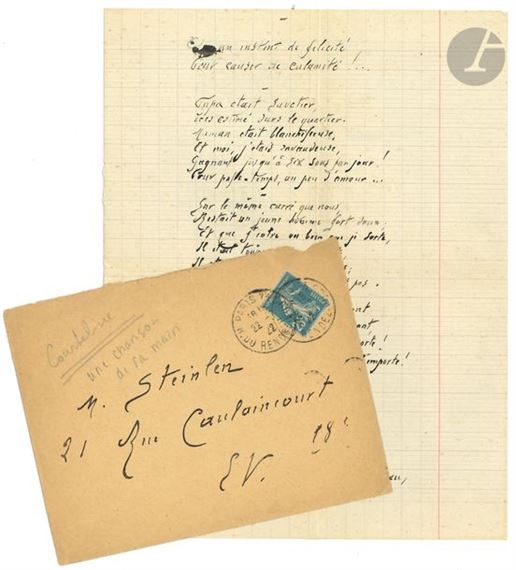 un instant de félicité
Pour causer une calamité !...
Papa était savetier,
Très estimé dans le quartier.
Maman était blanchisseuse,
Et moi, j'étais ravaudeuse,
Gagnant jusqu'à six sous par jour !
Pour passe-temps, un peu d'amour...
Sur le même carré que nous,
Restait un jeune homme fort doux,
Et que j'entre ou bien que je sorte,
Il était
pas.
t'emporte !
Courteline
une chanson
de sa main
PARIS
R. DU RENDEZ
22
M. Steinlen
21 Rue Caulaincourt
E.V. 18e